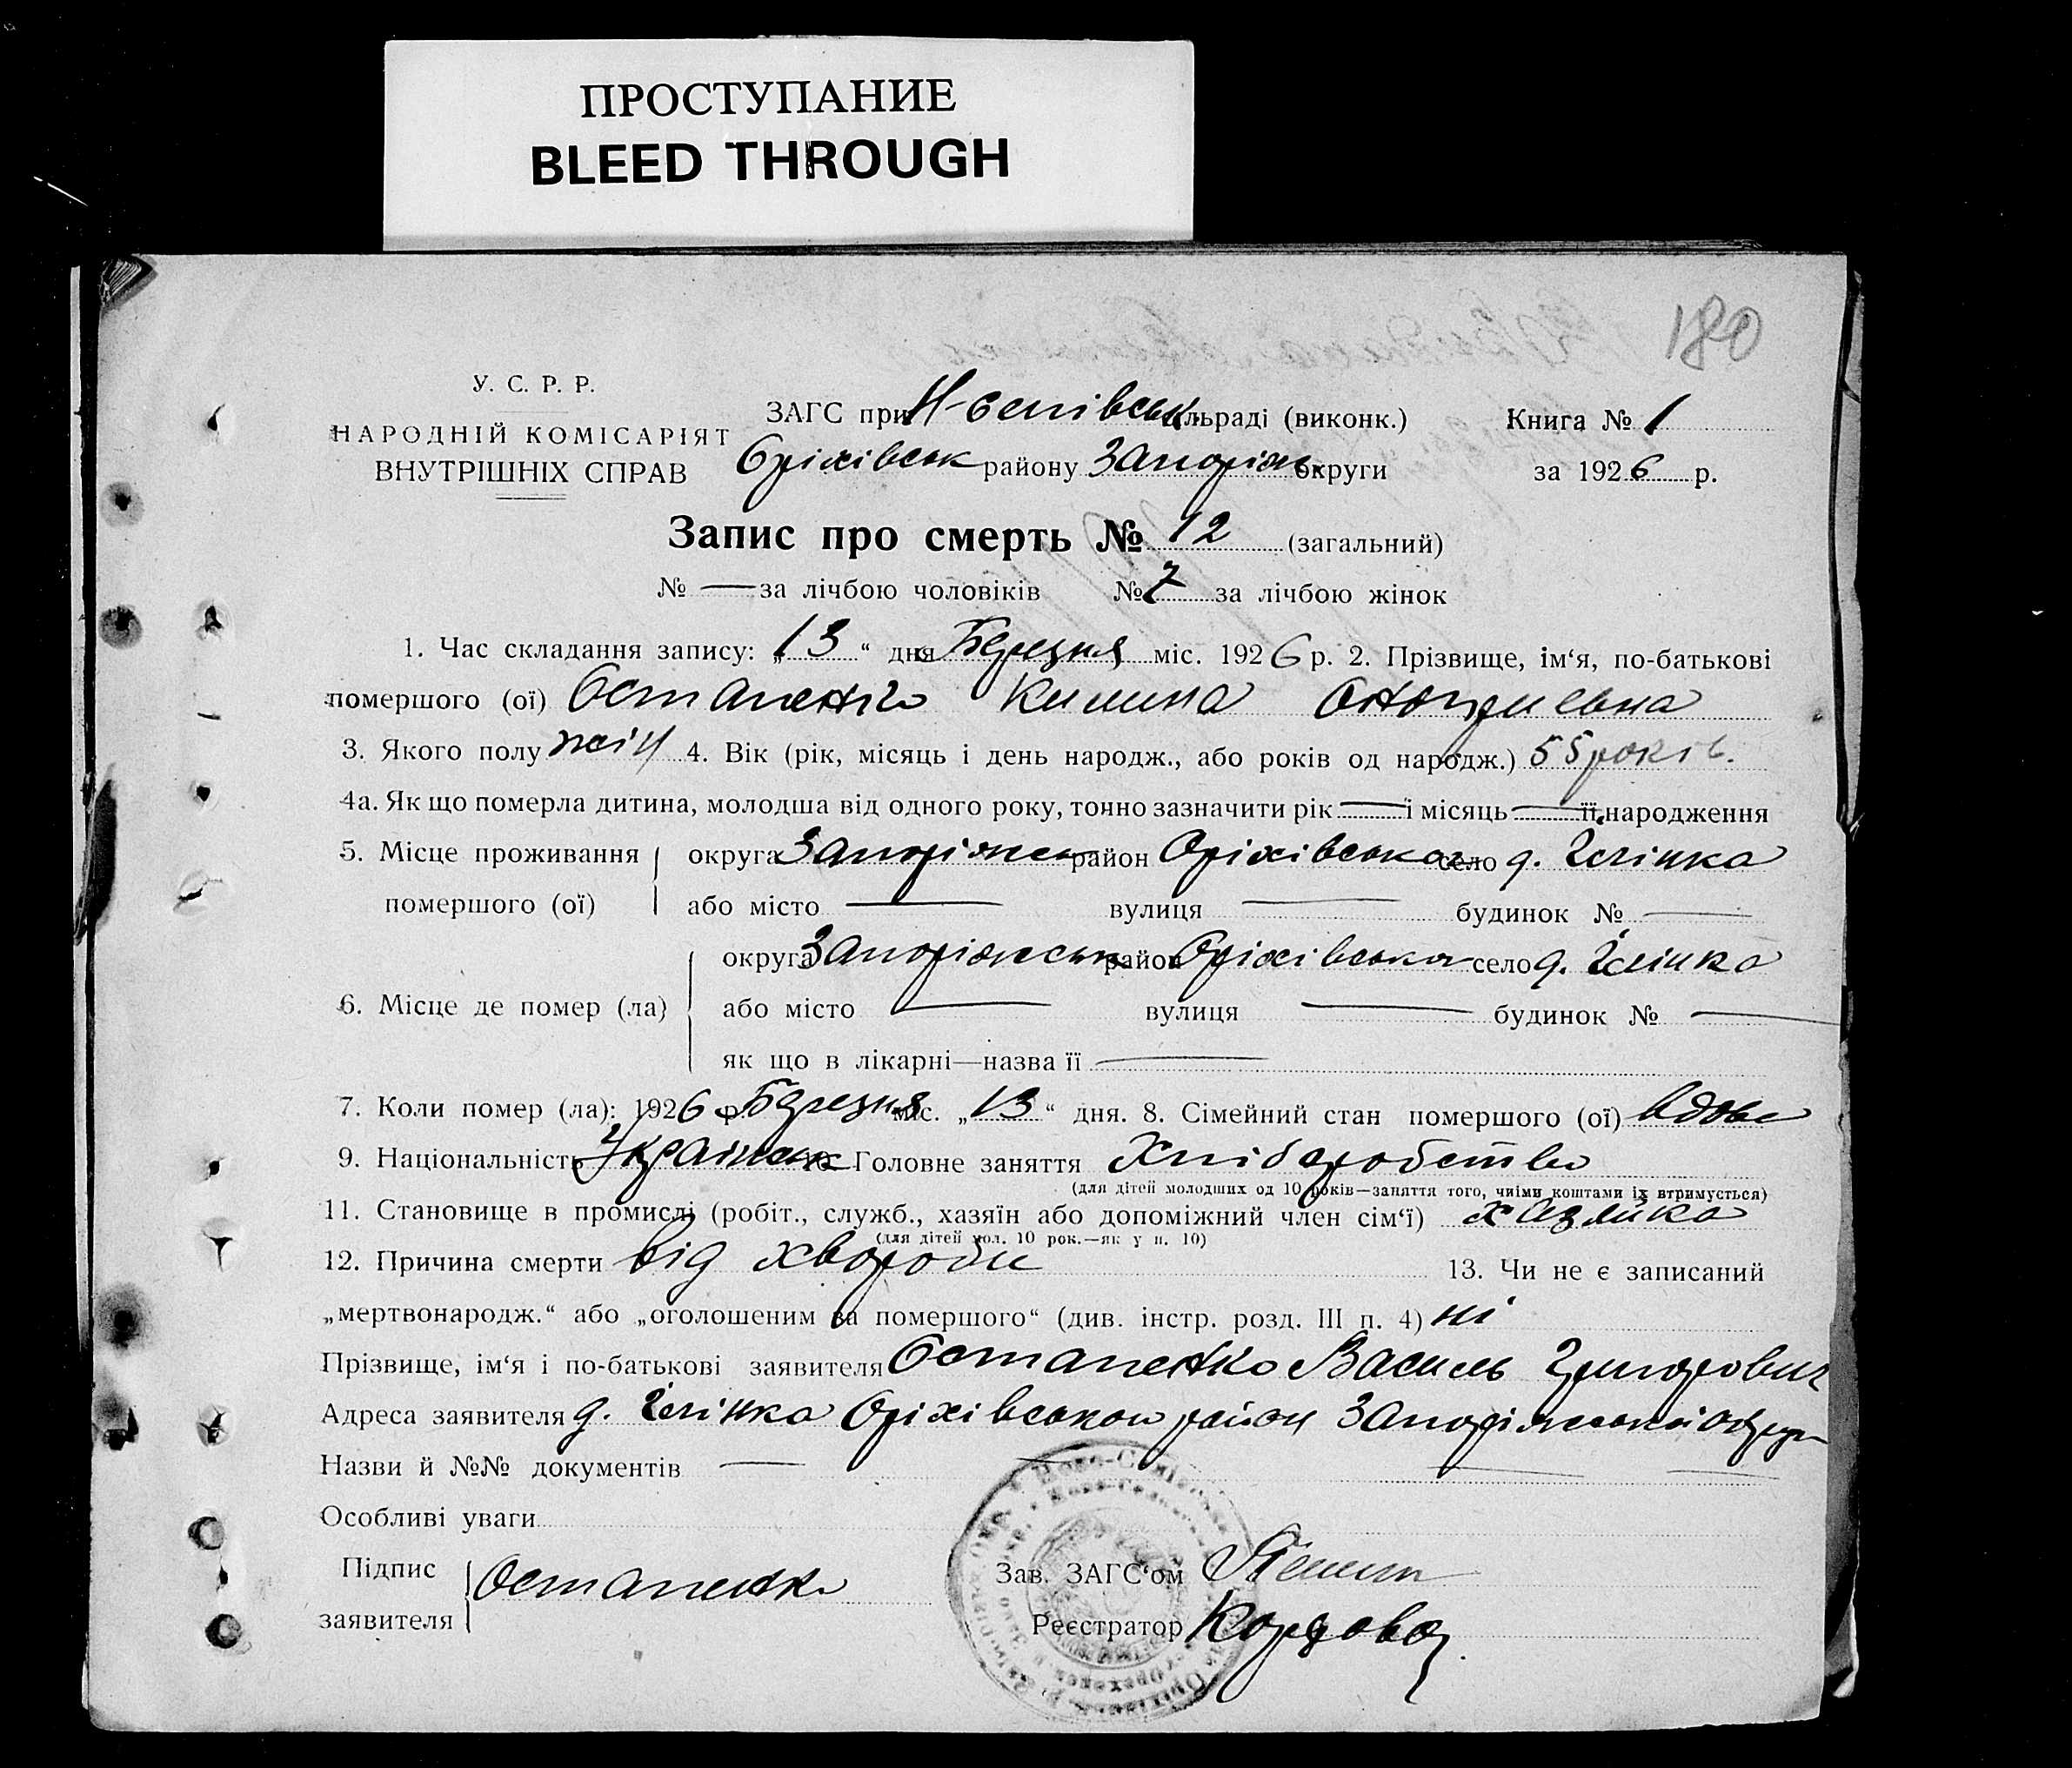 ПРОСТУПАНИЕ
BLEED THROUGH
180
У. С. Р. Р.
НАРОДНІЙ КОМІСАРІЯТ
ВНУТРІШНІХ СПРАВ
ЗАГС при сільраді (виконк.) Книга № 1
Оріхівськ району Запоріжь округи за 1926 р.
Запис про смерть № 12 (загальний)
№ — за лічбою чоловіків № 7 за лічбою жінок
1. Час складання запису: „13“ дня Березня міс. 1926 р. 2. Прізвище, ім'я, по-батькові
помершого (ої) Остапенко Килина
3. Якого полу жін 4. Вік (рік, місяць і день народж., або років од народж.) 55 років.
4а. Як що померла дитина, молодша від одного року, точно зазначити рік — і місяць — її народження
5. Місце проживання помершого (ої) округа район село
або місто — вулиця — будинок № —
6. Місце де помер (ла) округа район село
або місто — вулиця — будинок № —
як що в лікарні—назва її —
7. Коли помер (ла): 1926 р. Березня міс. „13“ дня. 8. Сімейний стан помершого (ої) вдова
9. Національність Головне заняття Хліборобство
(для дітей молодших од 10 років—заняття того, чиїми коштами їх втримується)
11. Становище в промислі (робіт., служб., хазяїн або допоміжний член сім'ї) хазяйка
(для дітей мол. 10 рок.—як у п. 10)
12. Причина смерти від хвороби 13. Чи не є записаний
„мертвонародж.“ або „оголошеним за помершого“ (див. інстр. розд. III п. 4) ні
Прізвище, ім'я і по-батькові заявителя Остапенко Василь Григорович
Адреса заявителя район
Назви й №№ документів —
Особливі уваги
Підпис заявителя Остапенко
Зав. ЗАГС'ом
Реєстратор